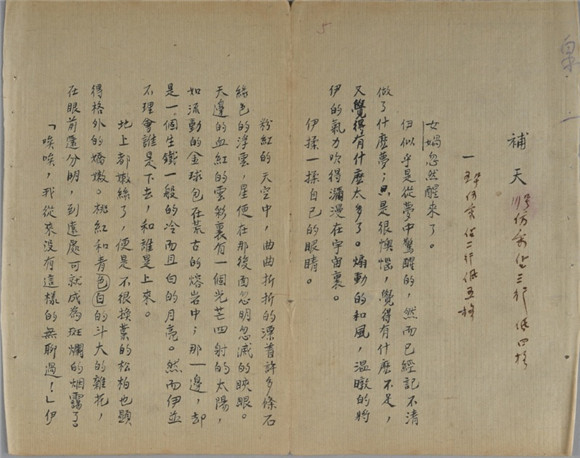 補天
一
女媧忽然醒來了。
伊似乎是從夢中驚醒的，然而已經記不清
做了什麽夢；只是很懊惱，覺得有什麽不足，
又覺得有什麽太多了。煽動的和風，溫暾的將
伊的氣力吹得瀰漫在宇宙裏。
伊揉一揉自己的眼睛。
粉紅的天空中，曲曲折折的漂着許多條石
綠色的浮雲，星便在那後面忽明忽滅的䀹眼。
天邊的血紅的雲彩裏有一個光芒四射的太陽，
如流動的金球包在荒古的熔岩中；那一邊，卻
是一個生鐵一般的冷而且白的月亮。然而伊並
不理會誰是下去，和誰是上來。
地上都嫩綠了，便是不很換葉的松柏也顯
得格外的嬌嫩。桃紅和青白色的斗大的雜花，
在眼前還分明，到遠處可就成為斑斕的烟靄了。
「唉唉，我從來沒有這樣的無聊過！」伊